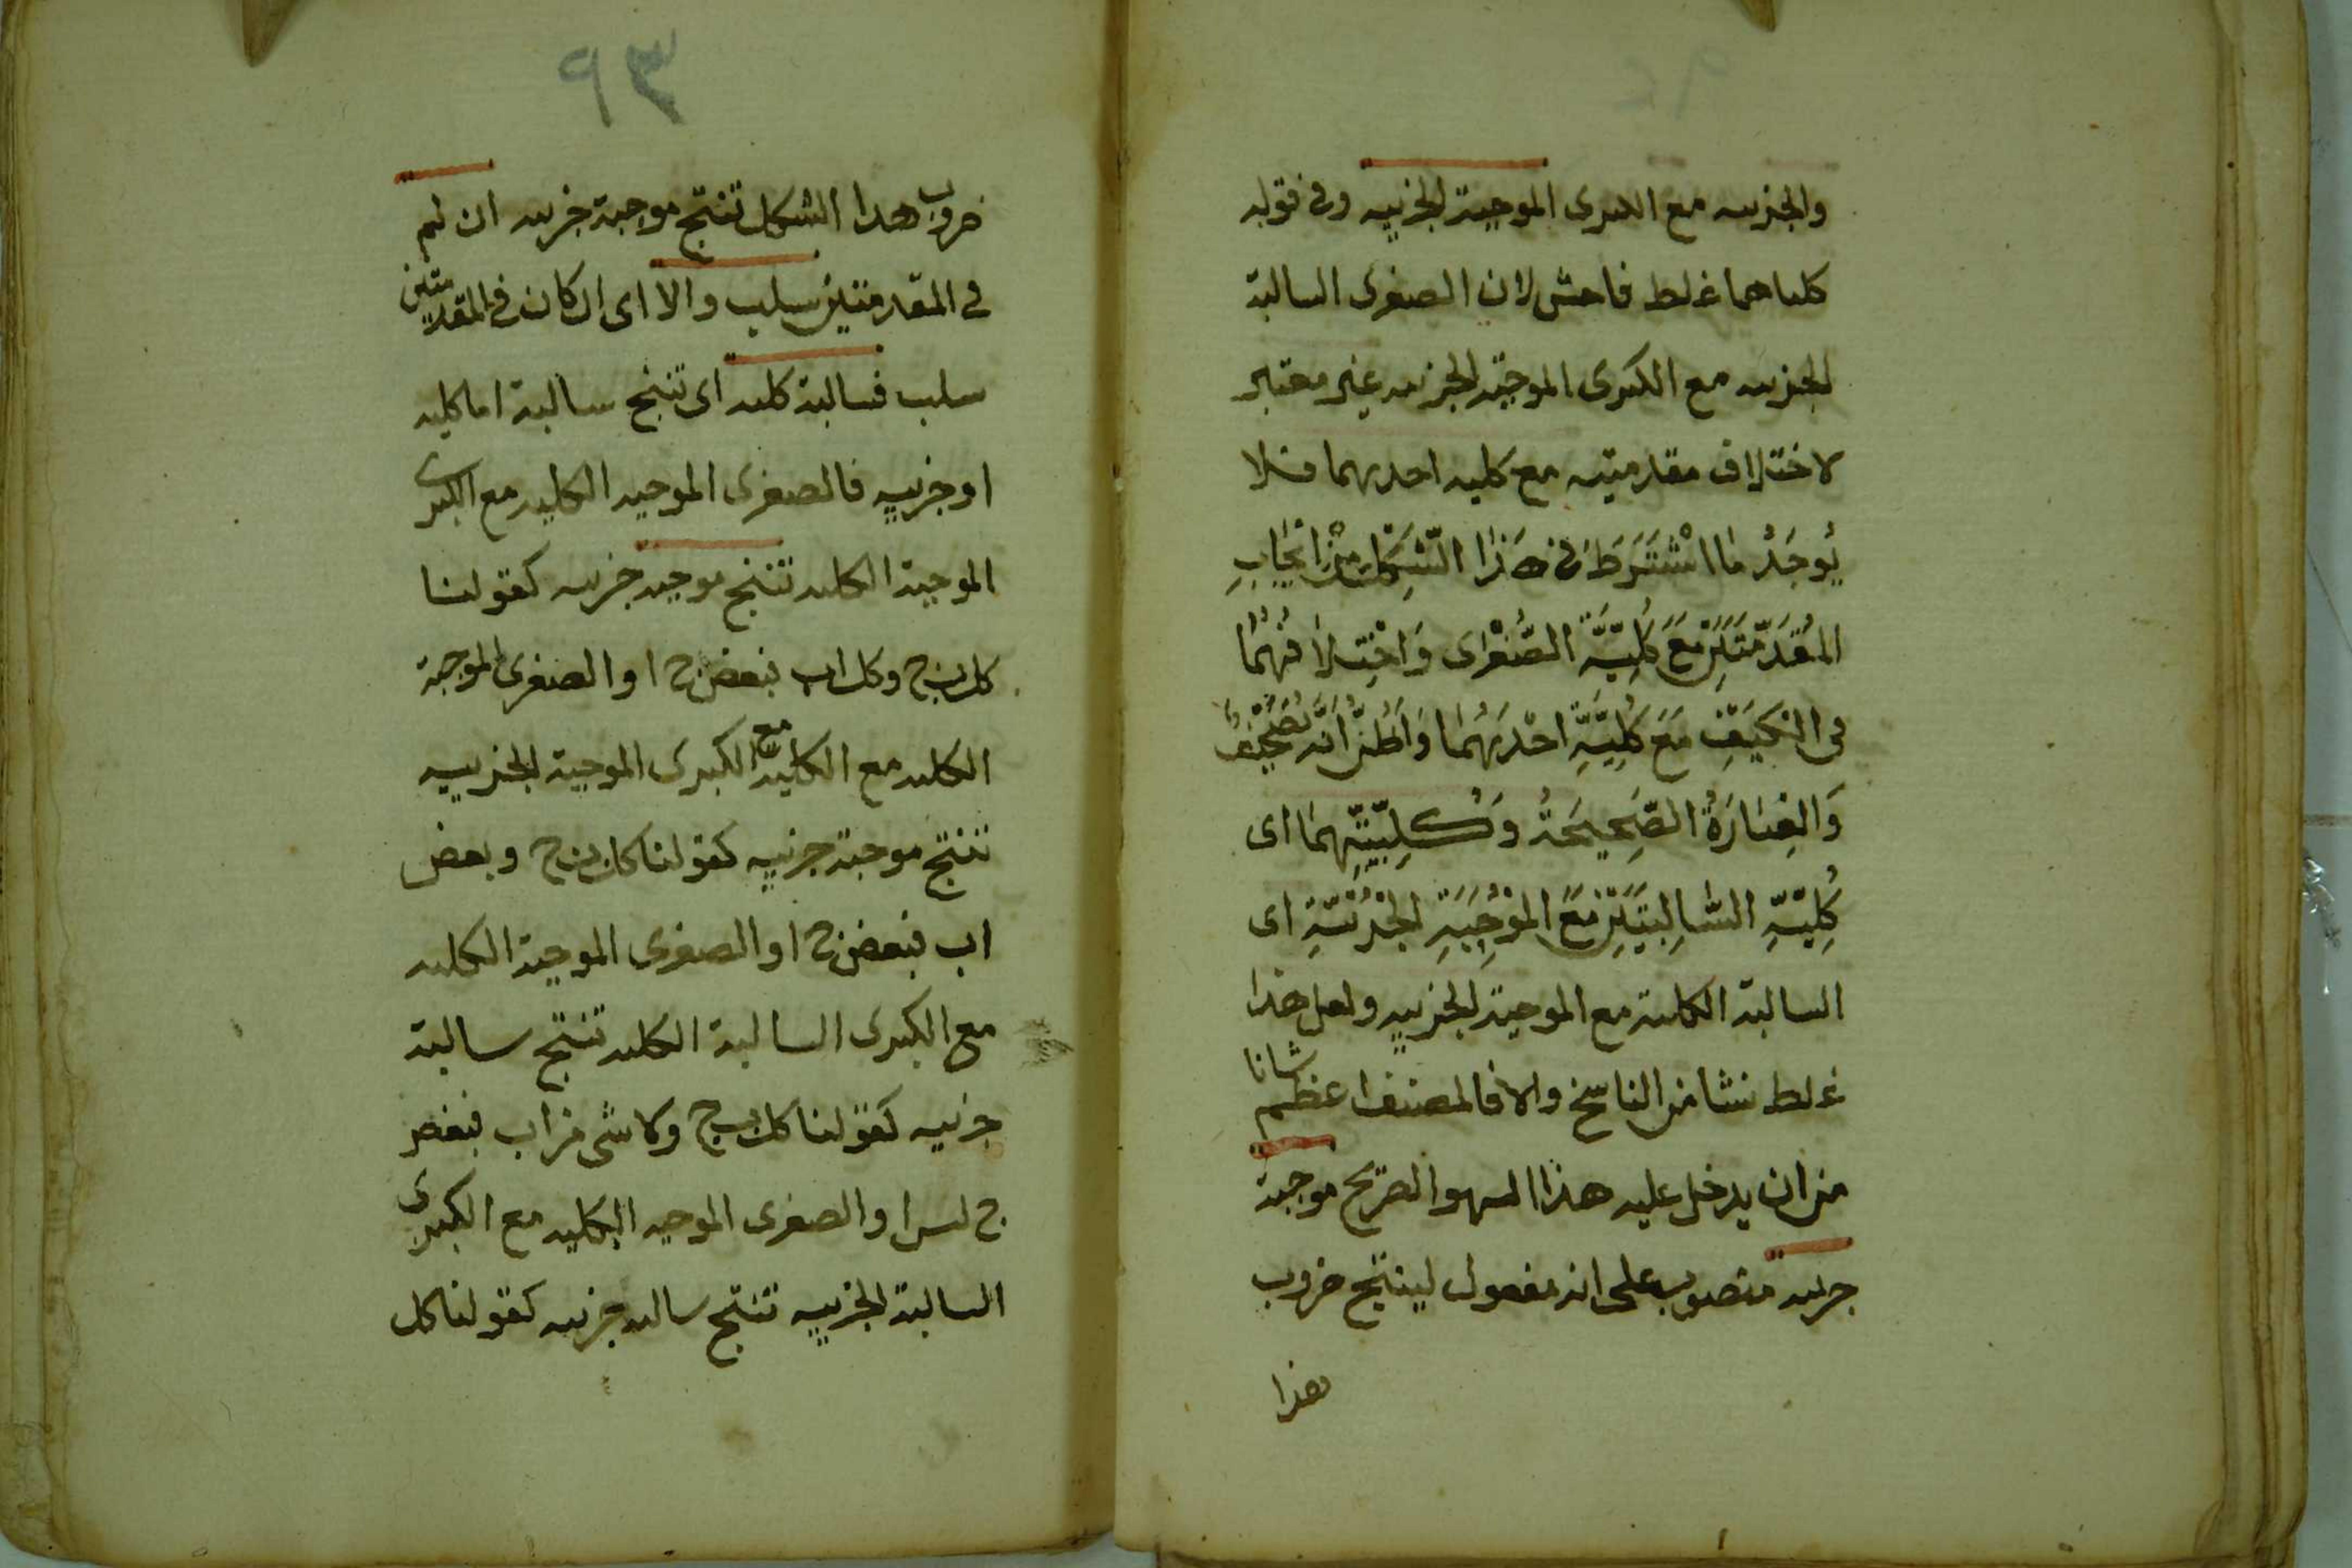 والجزييه مع الكبرى الموجبة الجزييه وفى قوله
كلماهما غلط فاحش لان الصغرى السالبة
الجزييه مع الكبرى الموجبة الجزييه غير معتبر
لاختلاف مقدمتيه مع كليه احديهما فلا
يُوجَدُ مَا اشْتُرِطَ فى هَذَا الشَّكْلِ مِنْ اِيْجَابِ
المُقَدَّمَتَيْنِ مَعَ كُلِيَّةِ الصُّغْرَاى وَاخْتِلَافُهُمَا
فى الكَيْفِ مَعَ كُلِّيَّةِ احْدَيهُمَا وَاَظُنُّ اَنَّه تَصْحِيْفٌ
وَالعِبَارَةُ الصَّحِيحَةُ وَكُلِيَّتِهِمَا اى
كُلِيَّةِ السَّالِبَتَيْنِ مَعَ المُوْجِبَةِ الجُزْئِيَّةِ اى
السالبة الكلية مع الموجبة الجزييه ولعل هذا
غلط نشا من الناسخ والا فالمصنف اعظم شانا
من ان يدخل عليه هذا السهو الصريح موجبة
جزييه منصوب على انه مفعول لينتج ضروب
هذا
٩٣
ضروب هدا الشكل تنتج موجبة جزييه ان لم
فى المقدمتين سلب والا اى ان كان فى المقدمتين
سلب فسالبة كليه اى تنتج سالبة اما كليه
او جزييه فالصغرى الموجبه الكليه مع الكبرى
الموجبة الكليه تنتج موجبه جزييه كقولنا
كل ب ج وكل اب فبعض ج ا والصغرى الموجبة
الكليه مع الكليه مع الكبرى الموجبة الجزييه
تنتج موجبة جزييه كقولنا كل ب ج وبعض
اب فبعض ج ا والصغرى الموجبة الكليه
مع الكبرى السالبة الكليه تنتج سالبة
جزييه كقولنا كل ب ج ولا شى من اب فبعض
ج ليس ا والصغرى الموجبه الكليه مع الكبرى
السالبة الجزييه تنتج سالبه جزييه كقولنا كل